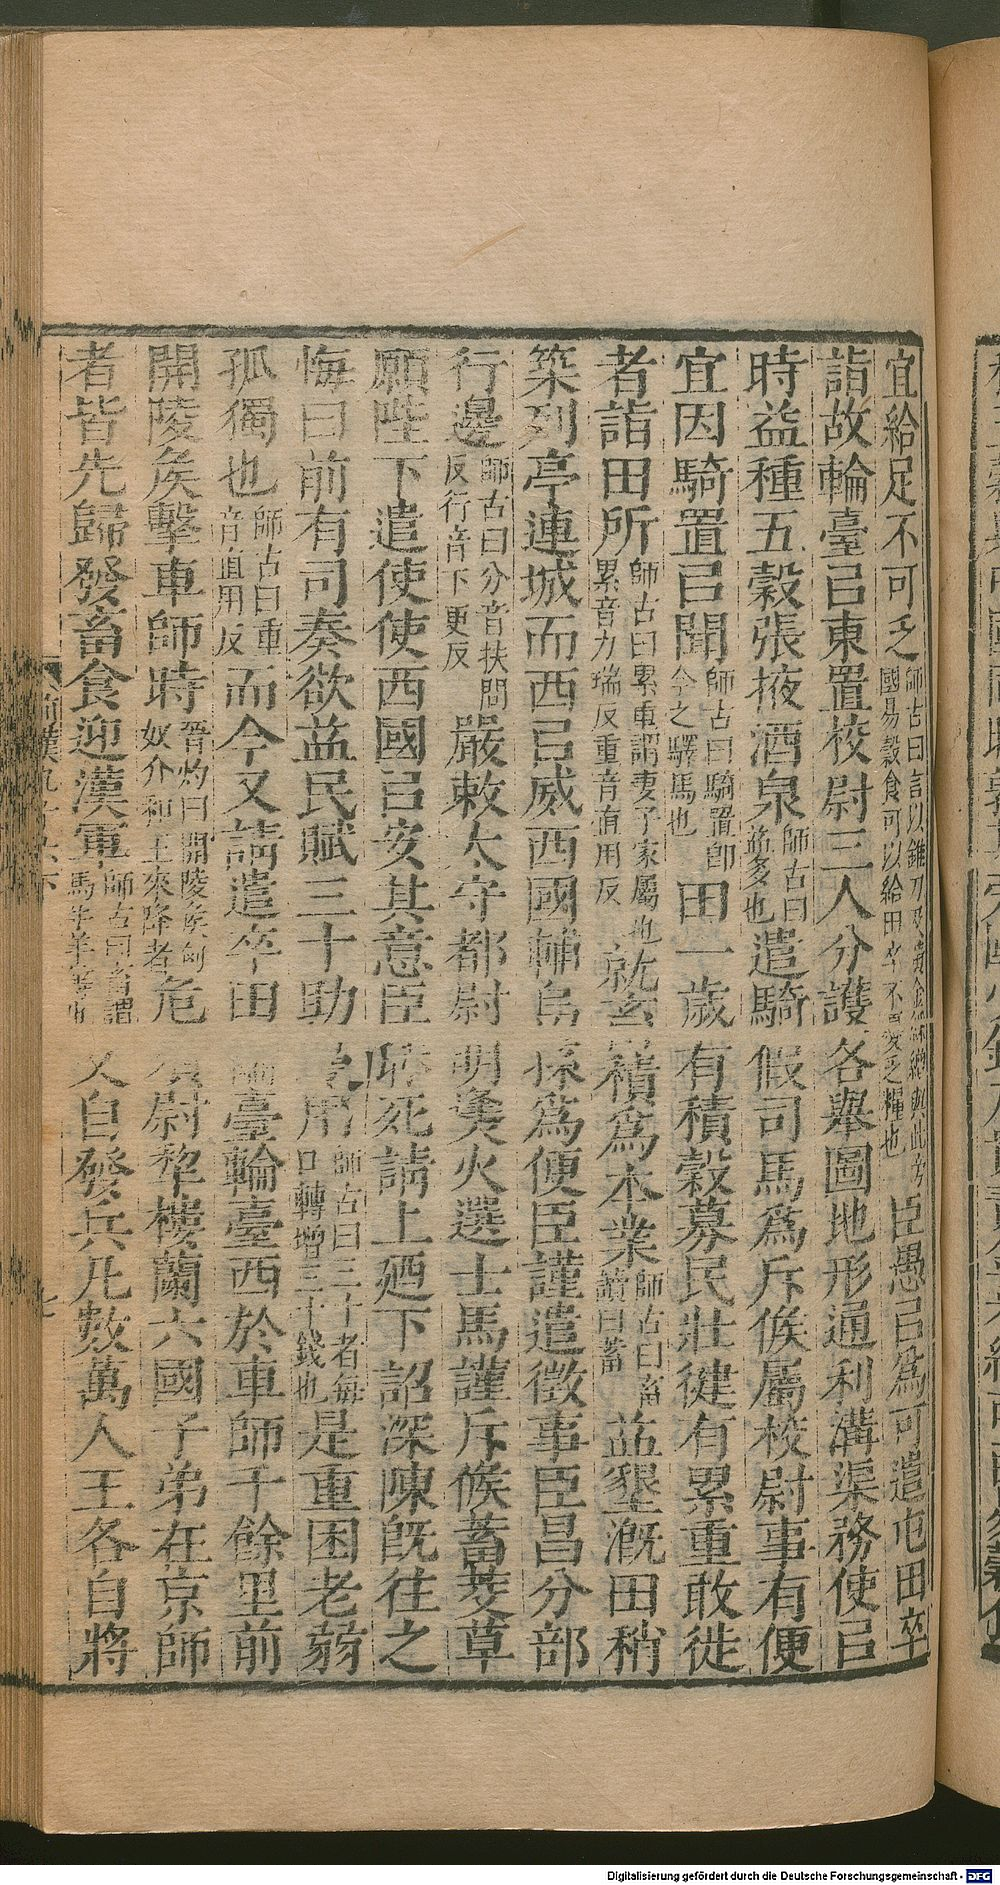 宜給足不可乏師古曰言以錐刀及黃金綵繒與此旁國易穀食可以給田卒不憂乏糧也臣愚㠯為可遣屯田卒
詣故輪臺㠯東置校尉三人分護各舉圖地形通利溝渠務使㠯
時益種五穀張掖酒泉師古曰益多也遣騎假司馬為斥候屬校尉事有便
宜因騎置㠯聞師古曰騎置即今之驛馬也田一歲有積穀募民壯健有累重敢徙
者詣田所師古曰累重謂妻子家屬也累音力瑞反重音直用反就畜積為本業師古曰畜讀曰蓄益墾溉田稍
築列亭連城而西㠯威西國輔烏孫為便臣謹遣徵事臣昌分部
行邊師古曰分音扶問反行音下更反嚴敕太守都尉明㷭火選士馬謹斥候蓄茭草
願陛下遣使使西國㠯安其意臣昧死請上廼下詔深陳既往之
悔曰前有司奏欲益民賦三十助邊用師古曰三十者每口轉增三十錢也是重困老弱
孤獨也師古曰重音直用反而今又請遣卒田輪臺輪臺西於車師千餘里前
開陵侯擊車師時晉灼曰開陵侯匈奴介和王來降者危須尉犂樓蘭六國子弟在京師
者皆先歸發畜食迎漢軍師古曰畜謂馬牛羊等也又自發兵凡數萬人王各自將
前漢九十六下
七
Digitalisierung gefördert durch die Deutsche Forschungsgemeinschaft - DFG